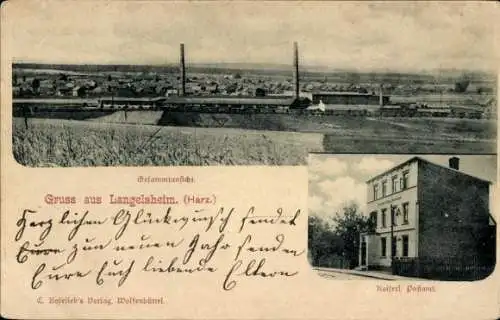 Gesammtansicht.
Gruss aus Langelsheim. (Harz.)
Herzlichen Glückwunsch sendet
Eure zum neuen Jahr senden
Eure Euch liebende Eltern
C. Hofelieb's Verlag, Wolfenbüttel.
Kaiserl. Postamt.